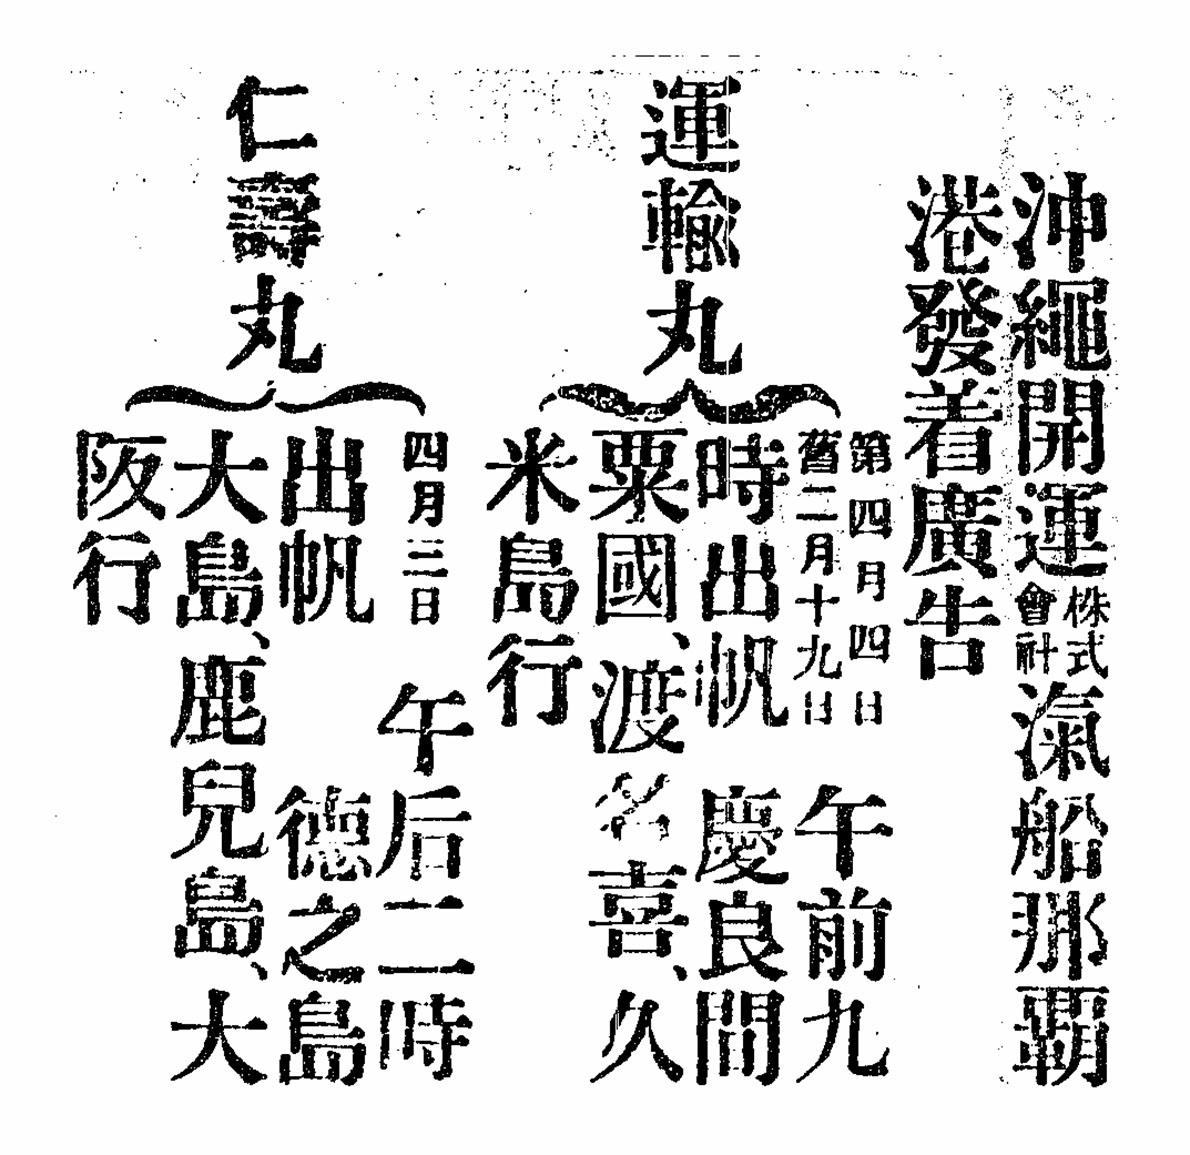 沖繩開運株式會社滊船那覇
港發着廣告
運輸丸
第四月四日
舊二月十九日
午前九
時出帆 慶良間
粟國、渡名喜、久
米島行
仁壽丸
四月三日
午后二時
出帆 德之島
大島、鹿兒島、大
阪行